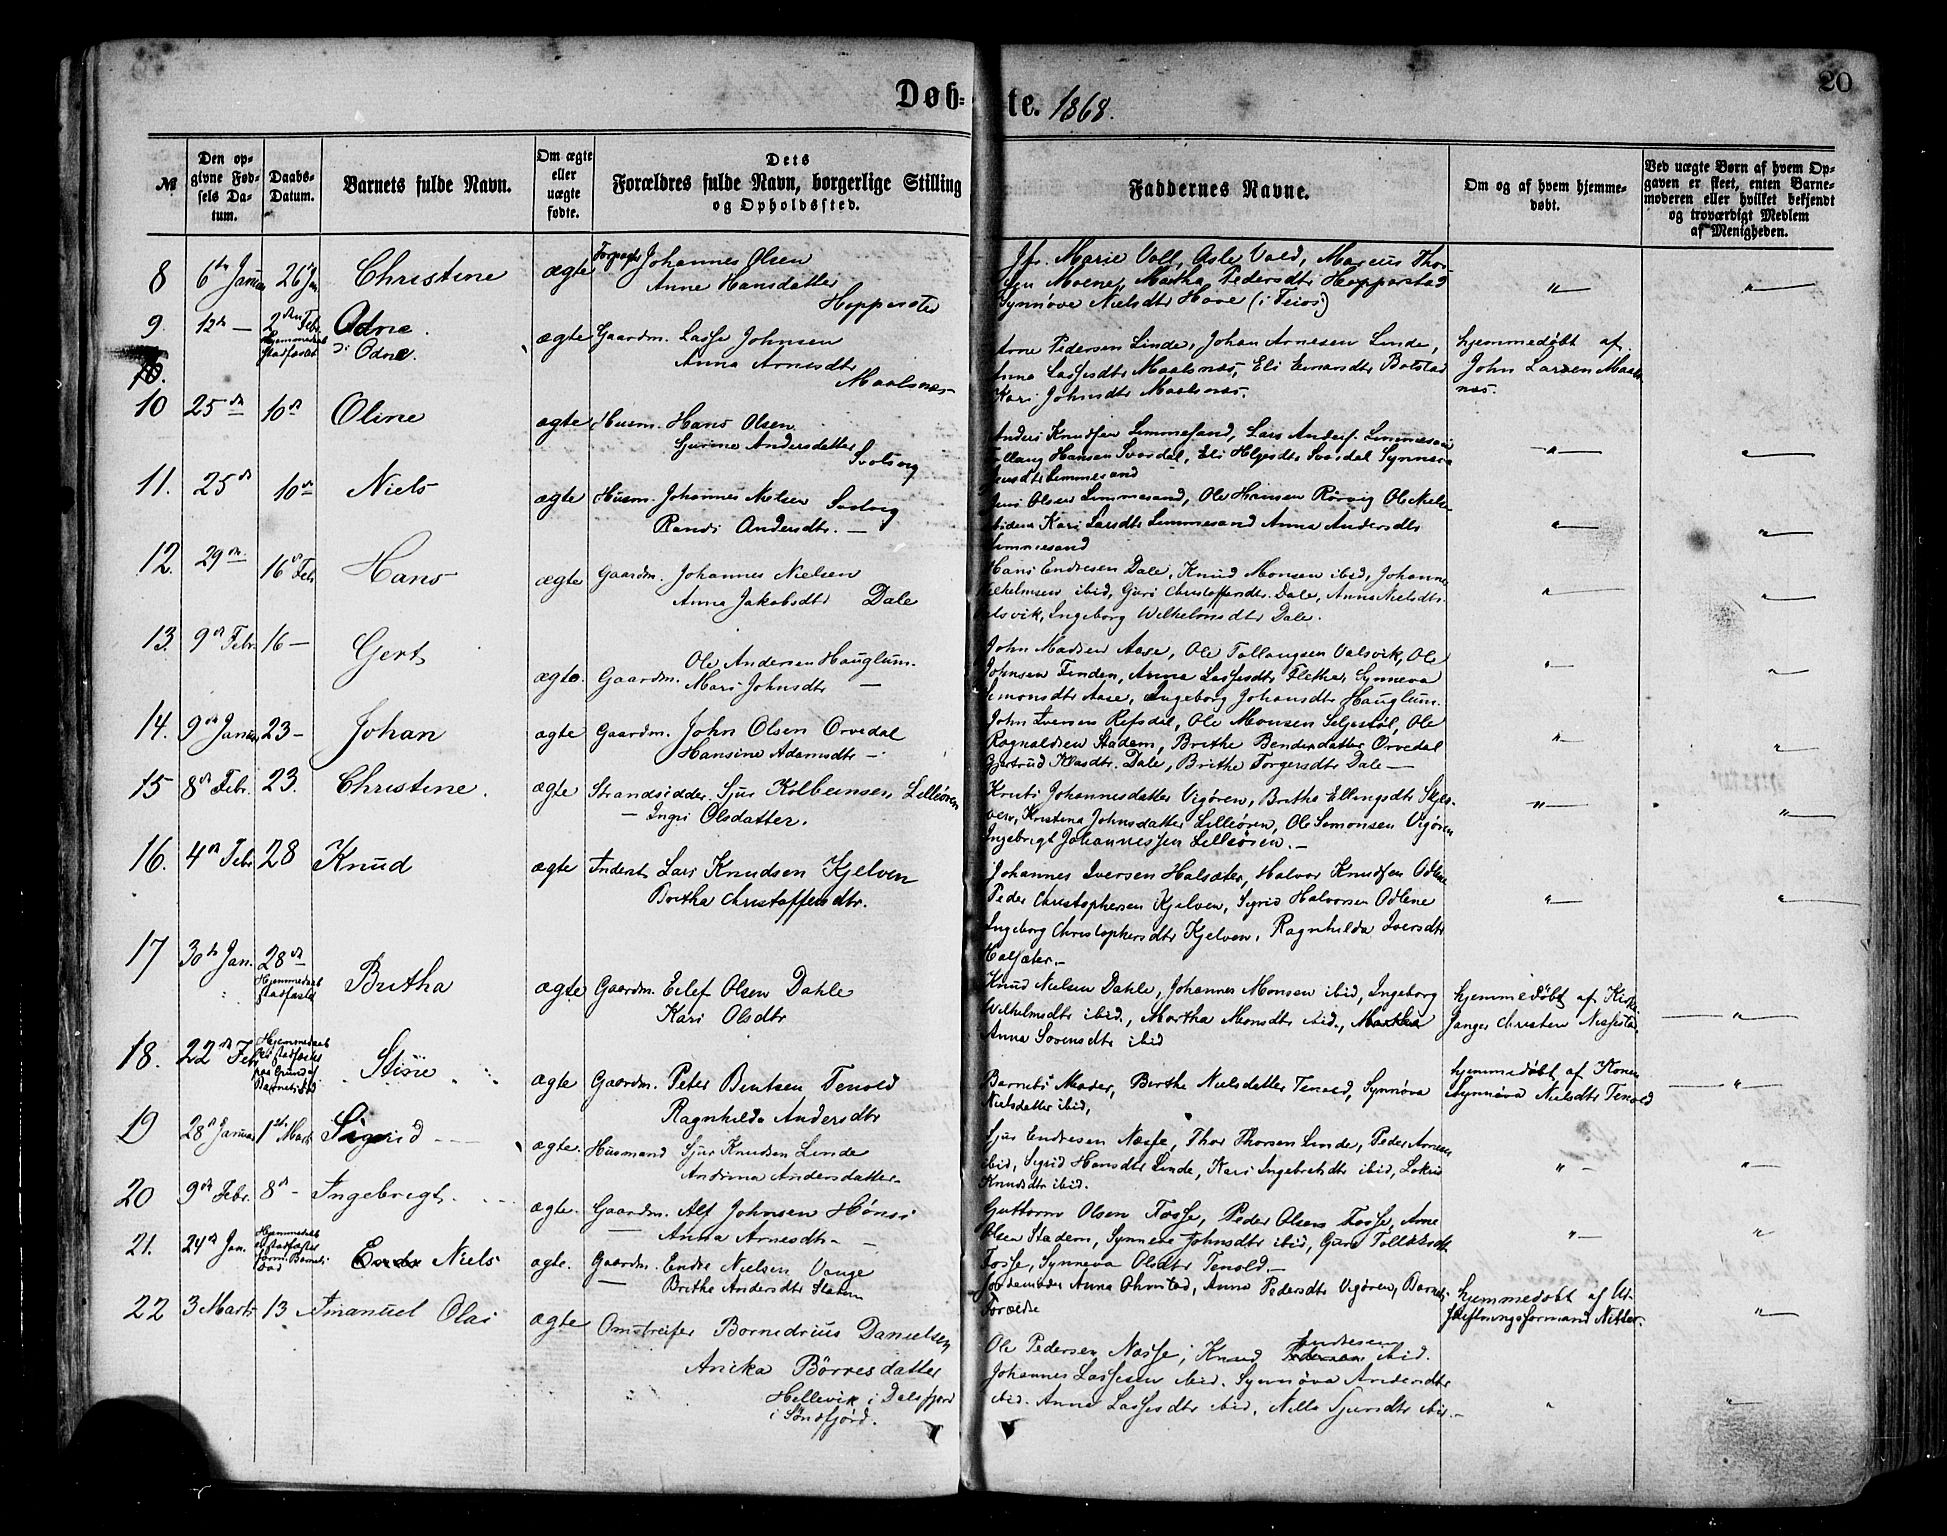 Døb-te. 1868.
20
№
Den opgivne Fødsels Datum.
Daabs-Datum.
Barnets fulde Navn.
Om ægte eller uægte fødte.
Dets Forældres fulde Navn, borgerlige Stilling og Opholdssted.
Faddernes Navne.
Om og af hvem hjemmedøbt.
Ved uægte Børn af hvem Opgaven er skeet, enten Barnemoderen eller hvilket bekjendt og troværdigt Medlem af Menigheden.
8 6te Januar 26 Jan Christine ægte Johannes Olsen
Anne Hansdatter
Hopperstad
Jfr. Marie Voll, Asle Vold, Marcus Thor-
sen Moene, Martha Pedersdtr Hopperstad
Synnøve Nielsdtr Hove (i Feios)
9. 12te — 2den Febr. Hjemmedaab stadfæstet Odne.
ɔ: Odne.
ægte Gaardm. Lasse Johnsen
Anna Arnesdtr
Maalsnæs
Arne Pedersen Linde, Johan Arnesen Linde,
Anna Lassesdtr Maalsnæs, Eli Bolstad
Kari Johnsdtr Maalsnæs.
hjemmedøbt af
John Larsen Maals
næs.
10 25de 10de Oline ægte Husm. Hans Olsen
Sjurine Andersdatter
Svolsvig
Anders Knudsen Limmesand, Lars Anders. Limmesand
Tollaug Hansen Svardal, Eli Helgesdtr Svardal Synneva
Limmesand
11. 25de 10de Niels ægte Husm. Johannes Nielsen
Randi Andersdtr. —
Jens Olsen Limmesand, Ole Hansen Rørvig Ole Niels-
Kari Larsdtr Limmesand Anna Andersdtr
Limmesand
12. 29de 16de Feb Hans ægte Gaardm. Johannes Nielsen
Anna Jakobsdtr Dale
Hans Endresen Dale, Knud Monsen ibid, Johannes
Wilhelmsen ibid, Guri Christoffersdtr. Dale, Anna Nielsdtr.
Valsvik, Ingeborg Wilhelmsdtr Dale.
13. 9de Febr. 16 — Gert ægte. Gaardm. Ole Andersen Hauglum.
Mari Johnsdtr —
John Madsen Aase, Ole Tollaugsen Valsvik, Ole
Johnsen Finden, Anna Lassesdtr Fletha, Synneva
Simonsdtr Aase, Ingeborg Johansdtr Hauglum.
14. 9de Januar 23 – Johan ægte Gaardm. John Olsen Orvedal
Hansine Adamsdtr —
John Iversen Refsdal, Ole Monsen Seljestøl, Ole
Ragnaldsen Stadem, Brithe Bendixdatter Orvedal
Gjertrud Klasdtr. Dale, Brithe Torgersdtr Dale —
15 8de Febr. 23. Christine. ægte Strandsidder. Sjur Kolbeinsen Lilleøren
— Ingri Olsdatter.
Johannesdatter Vigøren, Brithe Ellingsdtr
Kristina Johnsdatter Lilleøren, Ole Simonsen Vigøren
Ingebrigt Johannessen Lilleøren. —
16. 4de Febr 28 Knud ægte Inderst Lars Knudsen Kjelven
Brithe Christoffersdtr.
Johannes Iversen Halsæter, Halvor Knudsen Odlene
Peder Christophersen Kjelven, Sigrid Halvorsen Odlene
Ingeborg Christophersdtr Kjelven, Ragnhilda Iversdtr
Halsæter. —
17 30te Jan. 28de Hjemmedaab stadfæstet Britha ægte Gaardm. Eilef Olsen Dahle
Kari Olsdtr
Knud Nielsen Dahle, Johannes Monsen ibid, Ingeborg
Wilhelmsdtr ibid., Martha Monsdtr ibid., Martha
Anna Sørensdtr ibid
hjemmedøbt af Kirke
sanger Christen Nissestad
18. 22de Febr Hjemmedaab ei stadfæstet paa Grund af Barnets Død Stine ægte Gaardm. Peter Bentsen Tenold
Ragnhilda Andersdtr
Barnets Moder, Birthe Nielsdatter Tenold, Synnøva
Nielsdatter ibid,
hjemmedøbt af Konen
Synnøva Nielsdtr Tenold
19 28de Januar 1ste Marts Sigrid ægte. Husmand Sjur Knudsen Linde
Andrina Andersdatter
Sjur Endresen Nesse, Thor Thorsen Linde, Peder Arnesen
ibid, Sigrid Hansdtr Linde, Kari Ingebretsdtr ibid,
Knudsdtr ibid.
20 9de Febr. 8de Ingebrigt. ægte. Gaardm. Alf Johnsen Hønsi
— Anna Arnesdtr —
Guttorm Olsen Fosse, Peder Olsen Fosse, Arne
Olsen Stadem, Synneve Johnsdtr ibid, Guro
Fosse, Synneva Olsdtr Tenold —
21. 24de Jan. Hjemmedaab ei stadfæstet formed. Barnets Død Endre Niels ægte. Gaardm. Endre Nielsen Vange
— Brithe Andersdtr
Jordemoder Anna Ohnstad, Anna Pedersdtr Vigøren, Barnets
Forældre
hjemmedøbt af Ud-
skiftningsformand Nitter.
22 3 Marts 13 Imanuel Olai ægte Omstreifer Bornedrius Danielsen
Anika Børresdatter
Hellevik i Dalsfjord
i Søndfjord.
Ole Pedersen Nesse, Knud Pedersen Endresen ibid.
Johannes Lassesen ibid. Synnøva Andersdtr
ibid. Anna Lassesdtr ibid, Nille Sjursdtr ibid. —